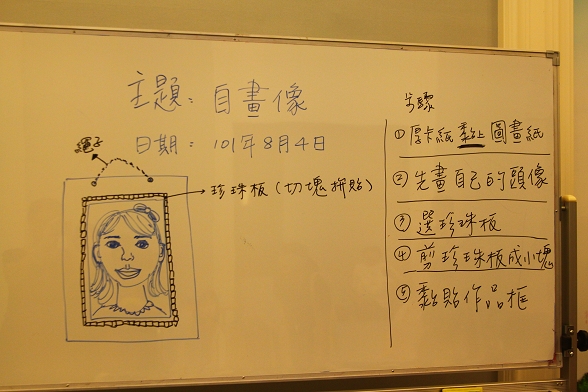 主題：自畫像
日期：101年8月4日
繩子
珍珠板(切塊拼貼)
步驟
①厚卡紙黏上圖畫紙
②先畫自己的頭像
③選珍珠板
④剪珍珠板成小塊
⑤黏貼作品框